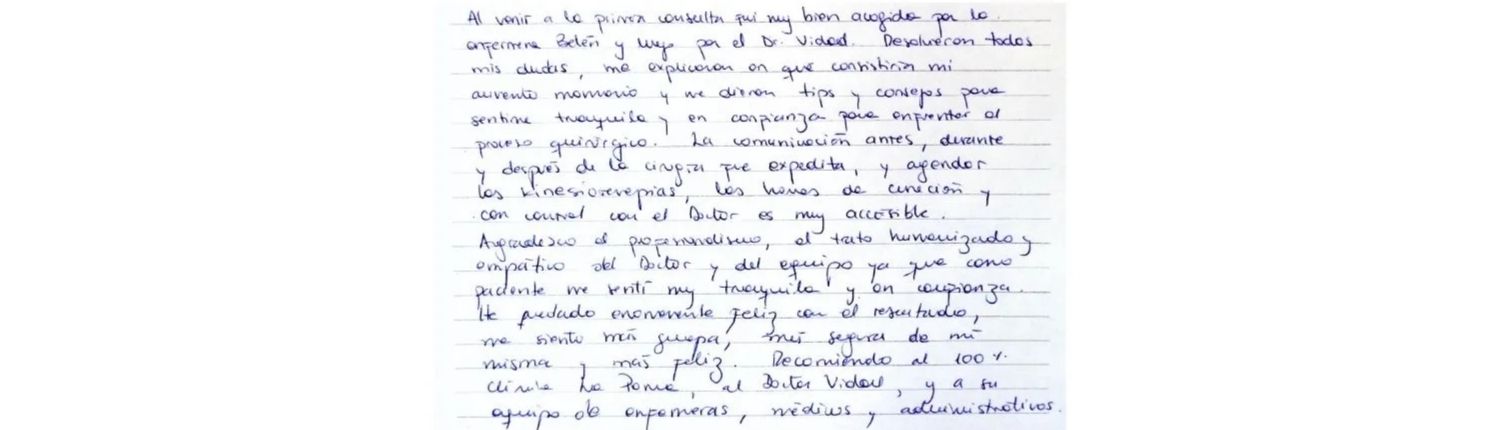 Al venir a la primera consulta fui muy bien acogida por la
enfermera Belén y luego por el Dr. Vidal. Resolvieron todas
mis dudas, me explicaron en que consistiría mi
aumento mamario y me dieron tips y consejos para
sentirme tranquila y en confianza para enfrentar el
proceso quirúrgico. La comunicación antes, durante
y después de la cirugía fue expedita, y agendar
las kinesioterapias, las horas de curación y
con control con el Doctor es muy accesible.
Agradesco el profesionalismo, el trato humanizado y
empático del Doctor y del equipo ya que como
paciente me sentí muy tranquila y en confianza.
He quedado enormemente feliz con el resultado,
me siento más guapa, más segura de mí
misma y más feliz. Recomiendo al 100%
Clínica La Parva, al Doctor Vidal, y a su
equipo de enfermeras, médicos y administrativos.